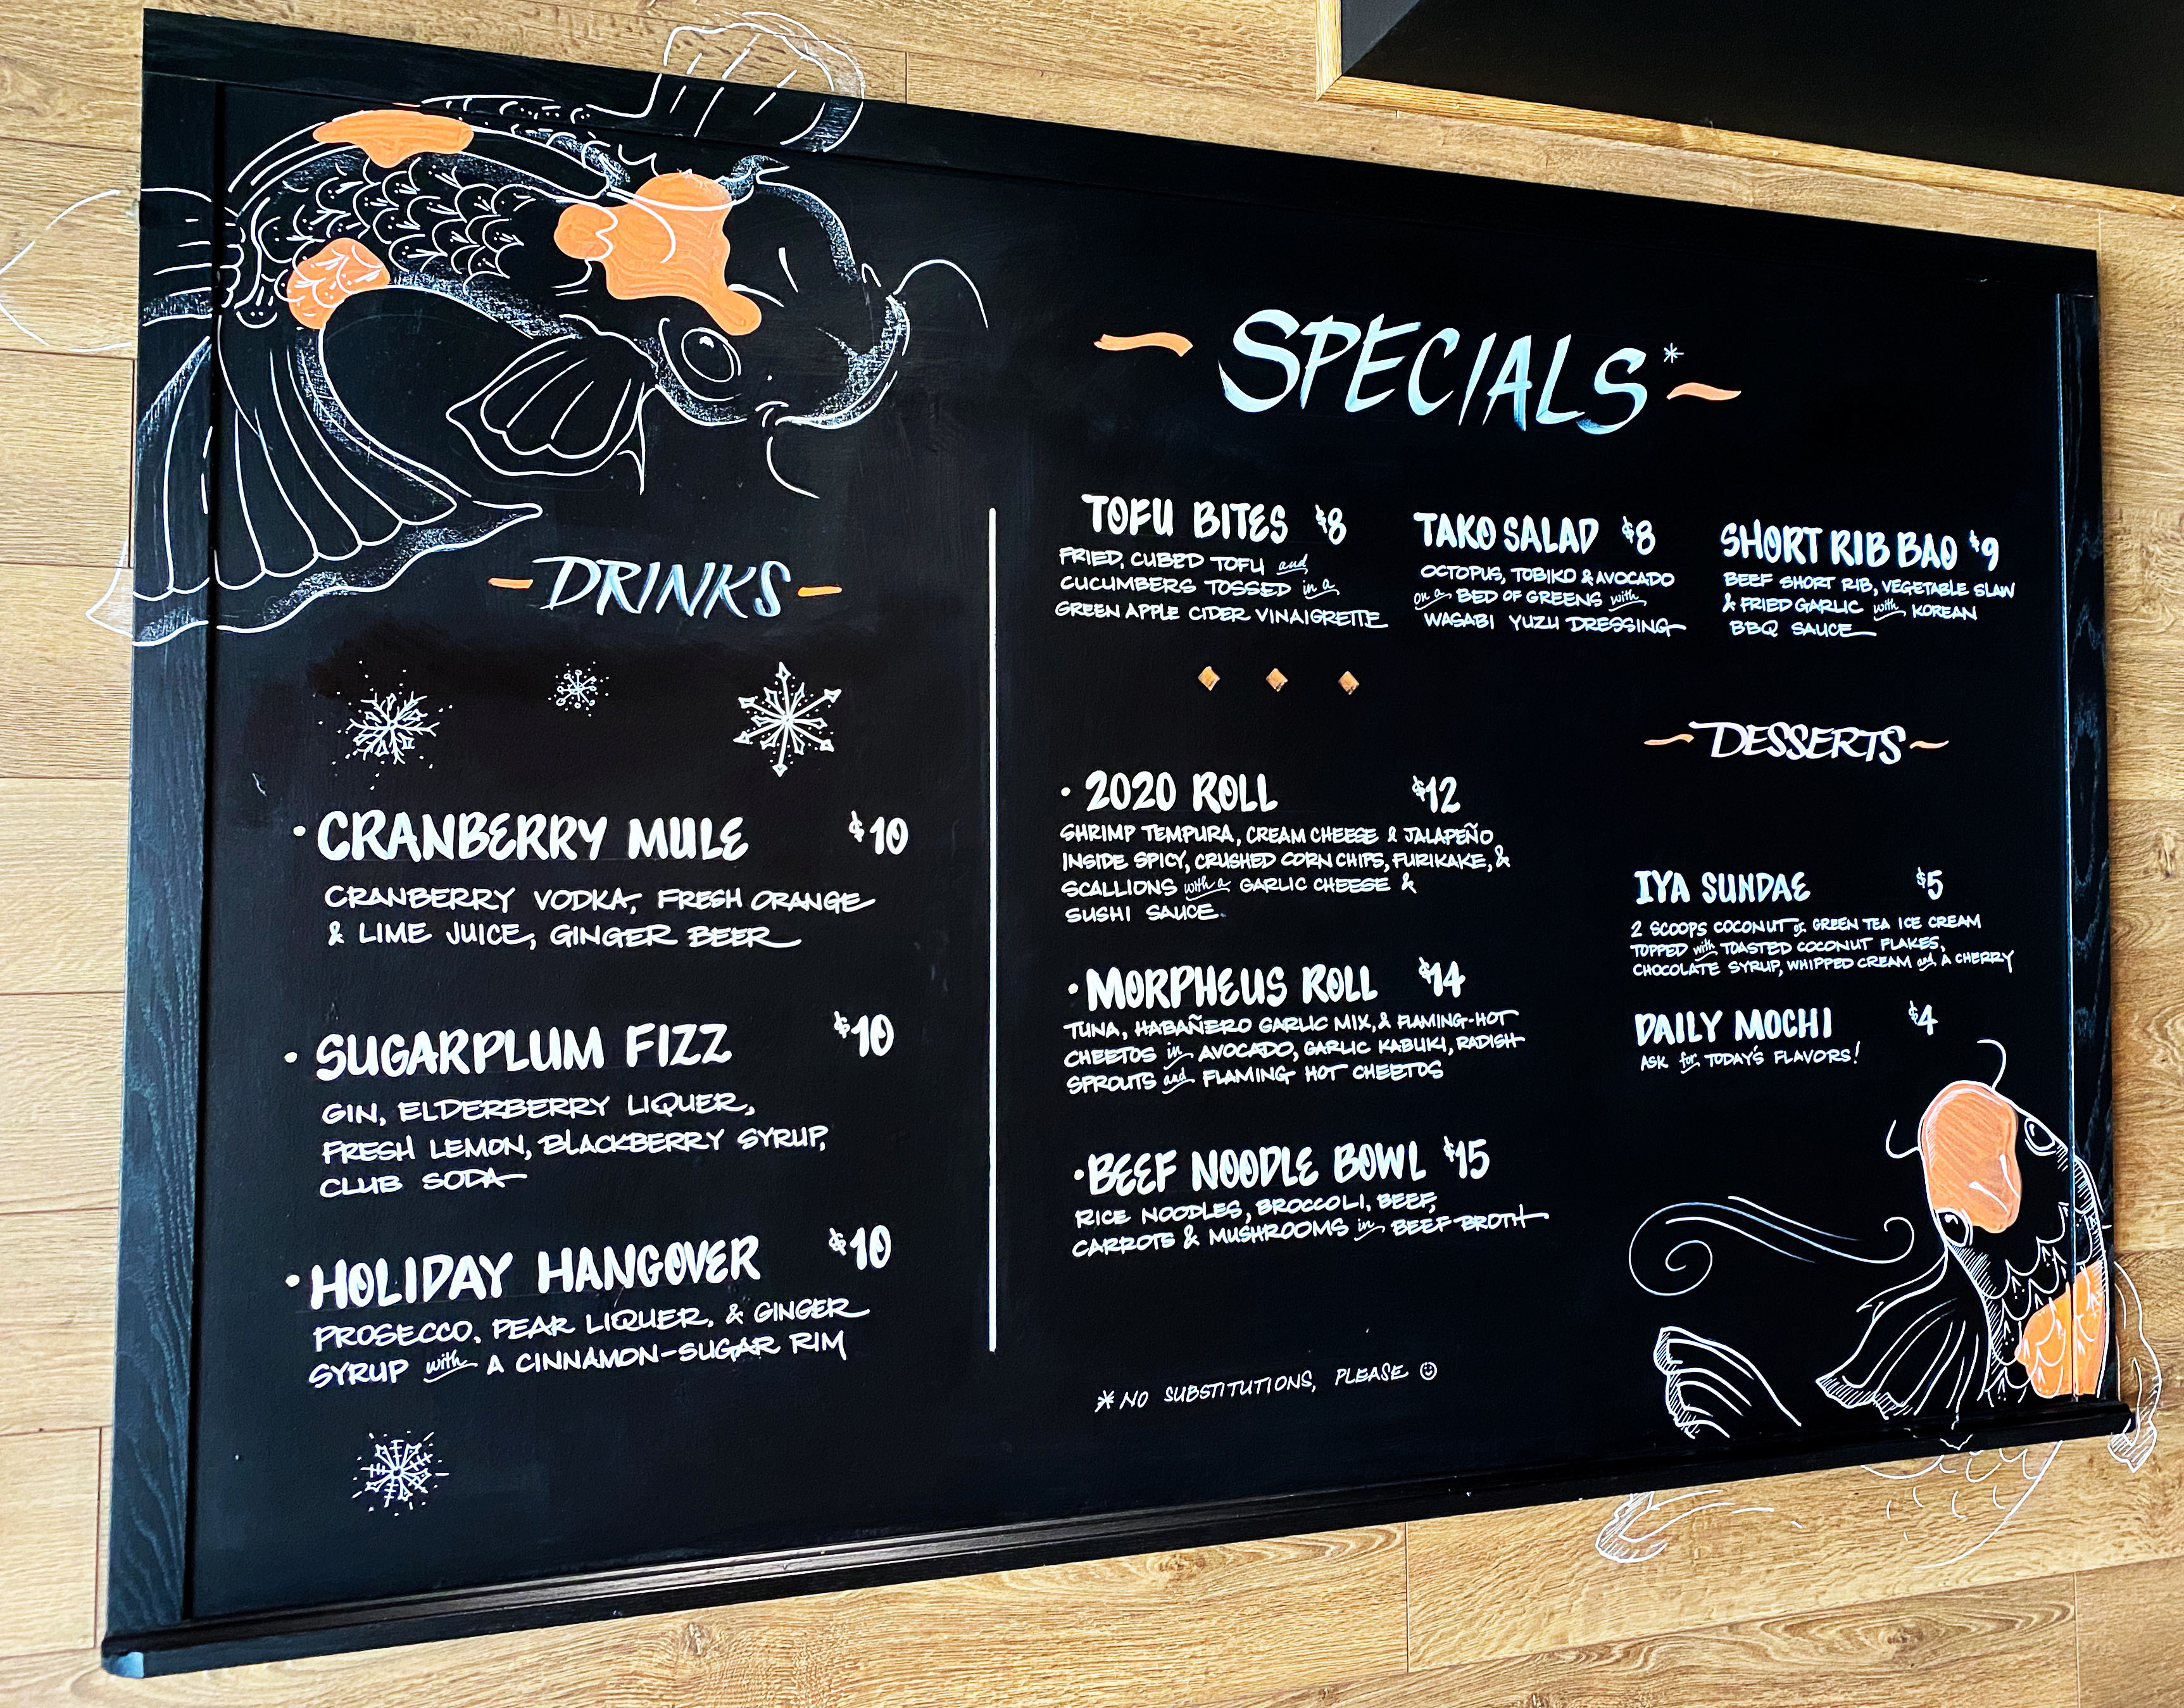 DRINKS
· CRANBERRY MULE $10
CRANBERRY VODKA, FRESH ORANGE
& LIME JUICE, GINGER BEER
· SUGARPLUM FIZZ $10
GIN, ELDERBERRY LIQUER,
FRESH LEMON, BLACKBERRY SYRUP,
CLUB SODA
· HOLIDAY HANGOVER $10
PROSECCO, PEAR LIQUER, & GINGER
SYRUP with A CINNAMON-SUGAR RIM
SPECIALS*
TOFU BITES $8
FRIED, CUBED TOFU and
CUCUMBERS TOSSED in a
GREEN APPLE CIDER VINAIGRETTE
TAKO SALAD $8
OCTOPUS, TOBIKO & AVOCADO
on a BED OF GREENS with
WASABI YUZU DRESSING
SHORT RIB BAO $9
BEEF SHORT RIB, VEGETABLE SLAW
& FRIED GARLIC with KOREAN
BBQ SAUCE
· 2020 ROLL $12
SHRIMP TEMPURA, CREAM CHEESE & JALAPEÑO
INSIDE SPICY, CRUSHED CORN CHIPS, FURIKAKE, &
SCALLIONS with a GARLIC CHEESE &
SUSHI SAUCE.
· MORPHEUS ROLL $14
TUNA, HABAÑERO GARLIC MIX, & FLAMING-HOT
CHEETOS in AVOCADO, GARLIC KABUKI, RADISH
SPROUTS and FLAMING HOT CHEETOS
· BEEF NOODLE BOWL $15
RICE NOODLES, BROCCOLI, BEEF,
CARROTS & MUSHROOMS in BEEF BROTH
* NO SUBSTITUTIONS, PLEASE ☺
DESSERTS
IYA SUNDAE $5
2 SCOOPS COCONUT or GREEN TEA ICE CREAM
TOPPED with TOASTED COCONUT FLAKES,
CHOCOLATE SYRUP, WHIPPED CREAM and A CHERRY
DAILY MOCHI $4
ASK for TODAY'S FLAVORS!